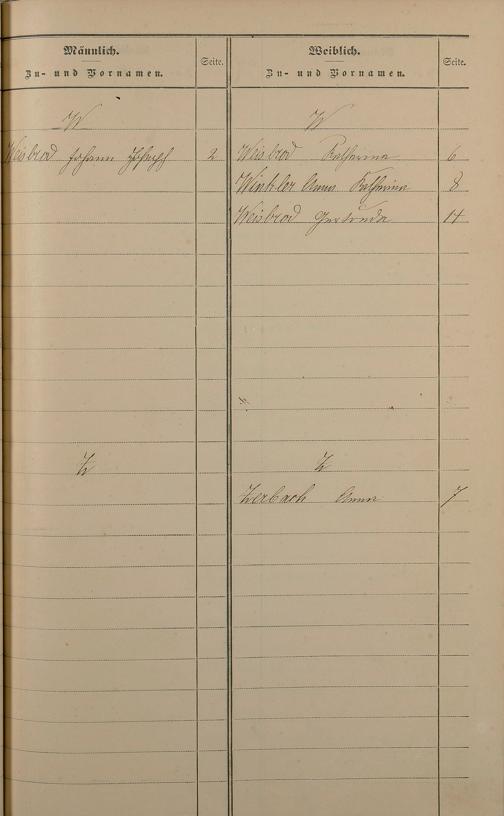 Männlich.
Zu- und Vornamen.
Seite.
W
Weisbrod Johann Joseph 2
Z
Weiblich.
Zu- und Vornamen.
Seite.
W
Weisbrod Katharina 6
Winkler Anna Katharina 8
Weisbrod Gertruda 14
Z
Zerbach Anna 7